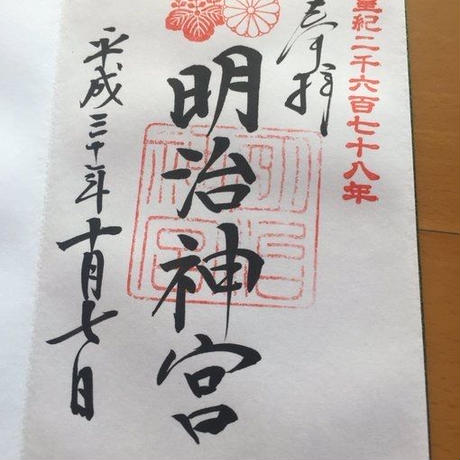 皇紀二千六百七十八年
奉拝
明治神宮
明治神宮
平成三十年十月七日